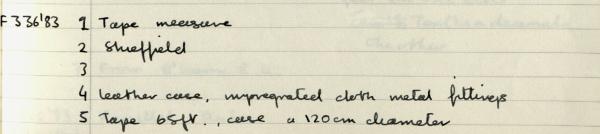 F336'83 1 Tape measure
2 Sheffield
3
4 leather case, impregrated cloth metal fittings
5 Tape 65ft., case a 120cm diameter